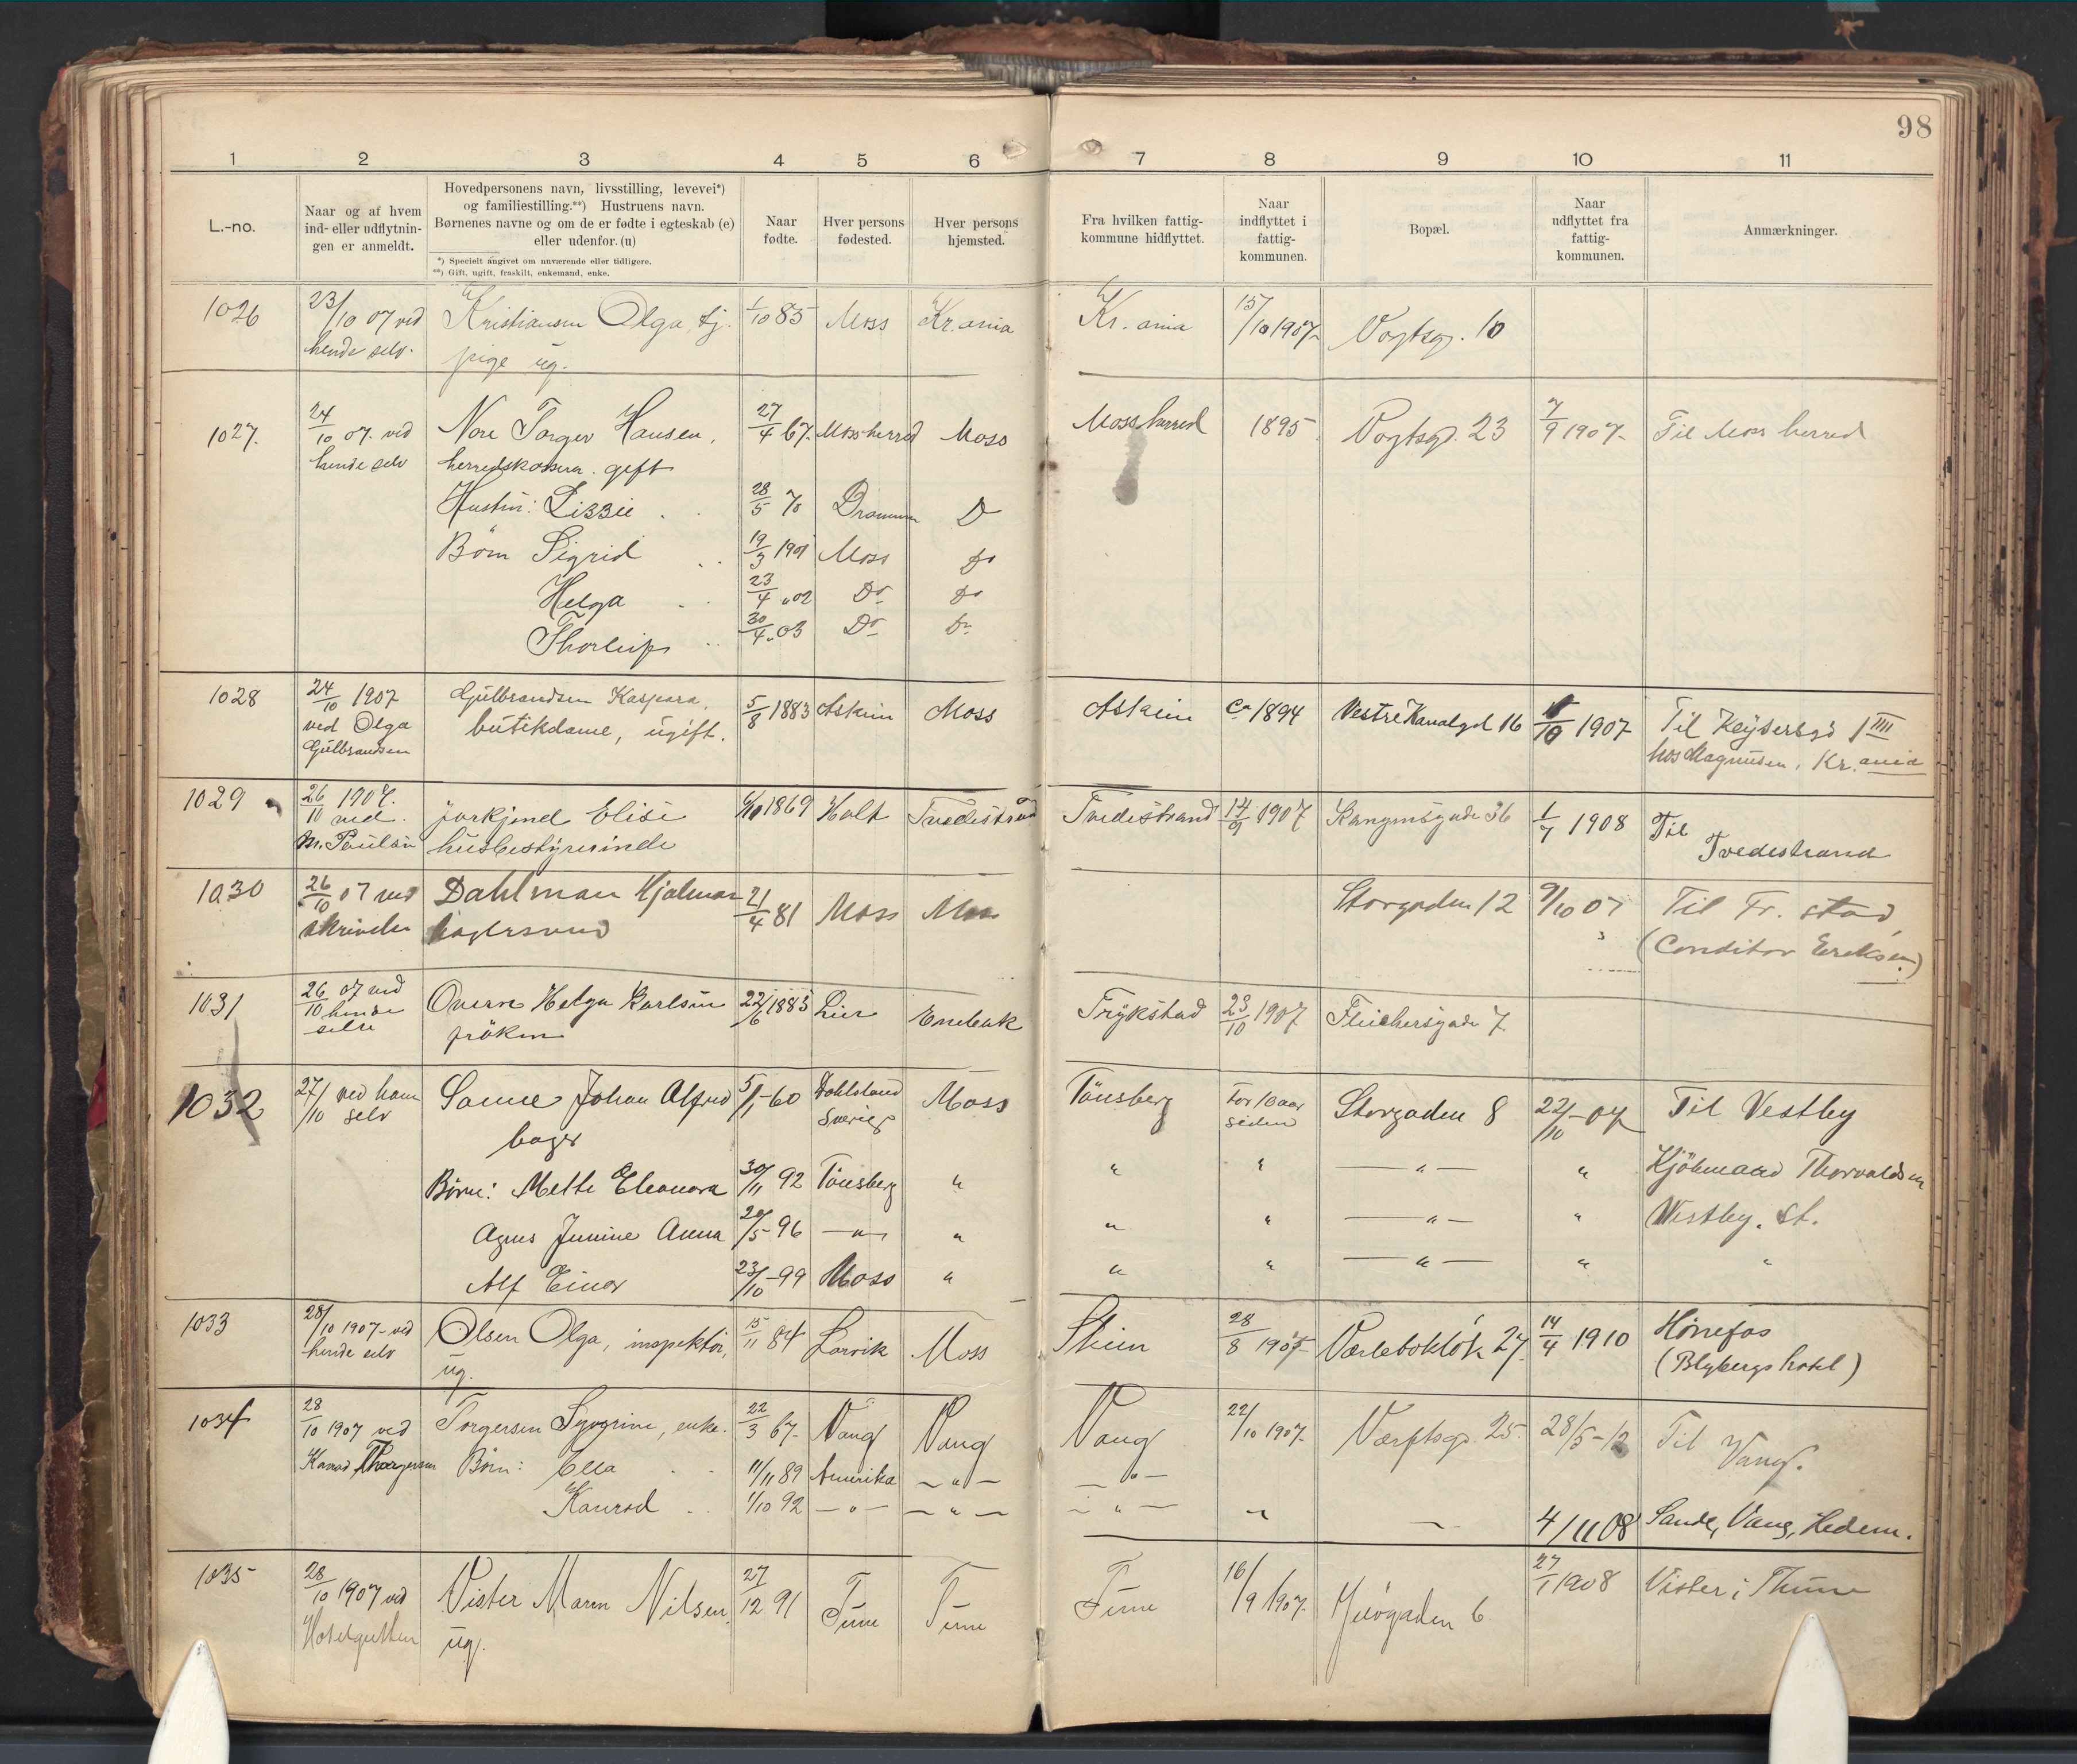 98
1 2 3 4 5 6 7 8 9 10 11
L.-no.
Naar og af hvem ind- eller udflytnin-gen er anmeldt.
Hovedpersonens navn, livsstilling, levevei*)
og familiestilling.**) Hustruens navn.
Børnenes navne og om de er fødte i egteskab (e)
eller udenfor. (u)
*) Specielt angivet om nuværende eller tidligere.
**) Gift, ugift, fraskilt, enkemand, enke.
Naar fødte.
Hver persons fødested.
Hver persons hjemsted.
Fra hvilken fattig-kommune hidflyttet.
Naar indflyttet i fattig-kommunen.
Bopæl.
Naar udflyttet fra fattig-kommunen.
Anmærkninger.
1026 23/10 07 ved Kristiansen Olga, tj. 1/10 85 Moss Kr.ania Kr.ania 15/10 1907 Vogtsg. 10
hende selv. pige ug.
1027. 24/10 07. ved Nore Torger Hansen, 27/4 67. Moss herred Moss Moss herred 1895 Vogtsgd. 23 7/9 1907 Til Moss herred
hende selv herredskasser. gift
Hustru: Lizzie 28/5 70 Drammen Do
Børn Sigrid 19/3 1901 Moss Do
Helga 23/4 02 Do Do
Thorleif 30/4 03 Do Do
1028 24/10 1907 Gulbrandsen Kaspara, 5/8 1883 Askim Moss Askim ca 1894 Vestre Kanalgd 16 /10 1907 Til Keysersgd 1 IIII
ved Olga butikdame, ugift. hos Magnusen, Kr.ania
Gulbrandsen
1029 26/10 1907. ved Jorkjend Elise 1869 Holt Tvedestrand Tvedestrand 14/9 1907 Kongensgade 36 1/7 1908 Til
M. Paulsen husbestyrerinde Tvedestrand
1030 26/10 07 ved Dahlman Hjalmar 21/4 81 Moss Moss Storgaden 12 9/10 07 Til Fr. stad
skrivelse bagersvend (Conditor Ereksen)
1031 26/10 07 ved Helga Karlsen 22/6 1883 Lier Enebak Trykstad 23/10 1907 Fleichersgade 7
hende selv frøken
1032 27/10 ved ham Sanne Johan Alfred 5/1-60 Dahlsland Moss Tønsberg For 10 aar Storgaden 8 22/10-07 Til Vestby
selv bager Sverige siden
Børn: Mette Eleonora 30/11 92 Tønsberg " " " — " — " Kjøbmand Thorvaldsen
Agnes Jenine Anna 20/5 96 — " — " " " — " — " Vestby. St.
Alf Einar 23/10-99 Moss " " " — " — " "
1033 28/10 1907 ved Olsen Olga, inspektør, 15/11 84 Larvik Moss Skien 28/8 1905 Værlebokløk 27. 14/4 1910 Hønefos
hende selv ug. (Blybergs hotel)
1034 28/10 1907 ved Torgersen Sygrine, enke. 22/3 67 Vang Vang Vang 22/10 1907 Værftsgd. 25. 28/5-12 Til Vang.
Konrad Thorgersen Børn: Ella 11/11 89 Amerika — " — — " —
Konrad 1/10 92 — " — — " — — " — " — 4/11 08 Sande, Vang, Hedem.
1035 28/10 1907 ved Vister Maren Nilsen 27/12 91 Tune Tune Tune 16/9 1907 Jeløgaden 6 27/1 1908 Vister i Thune
Hotelgutten ug.